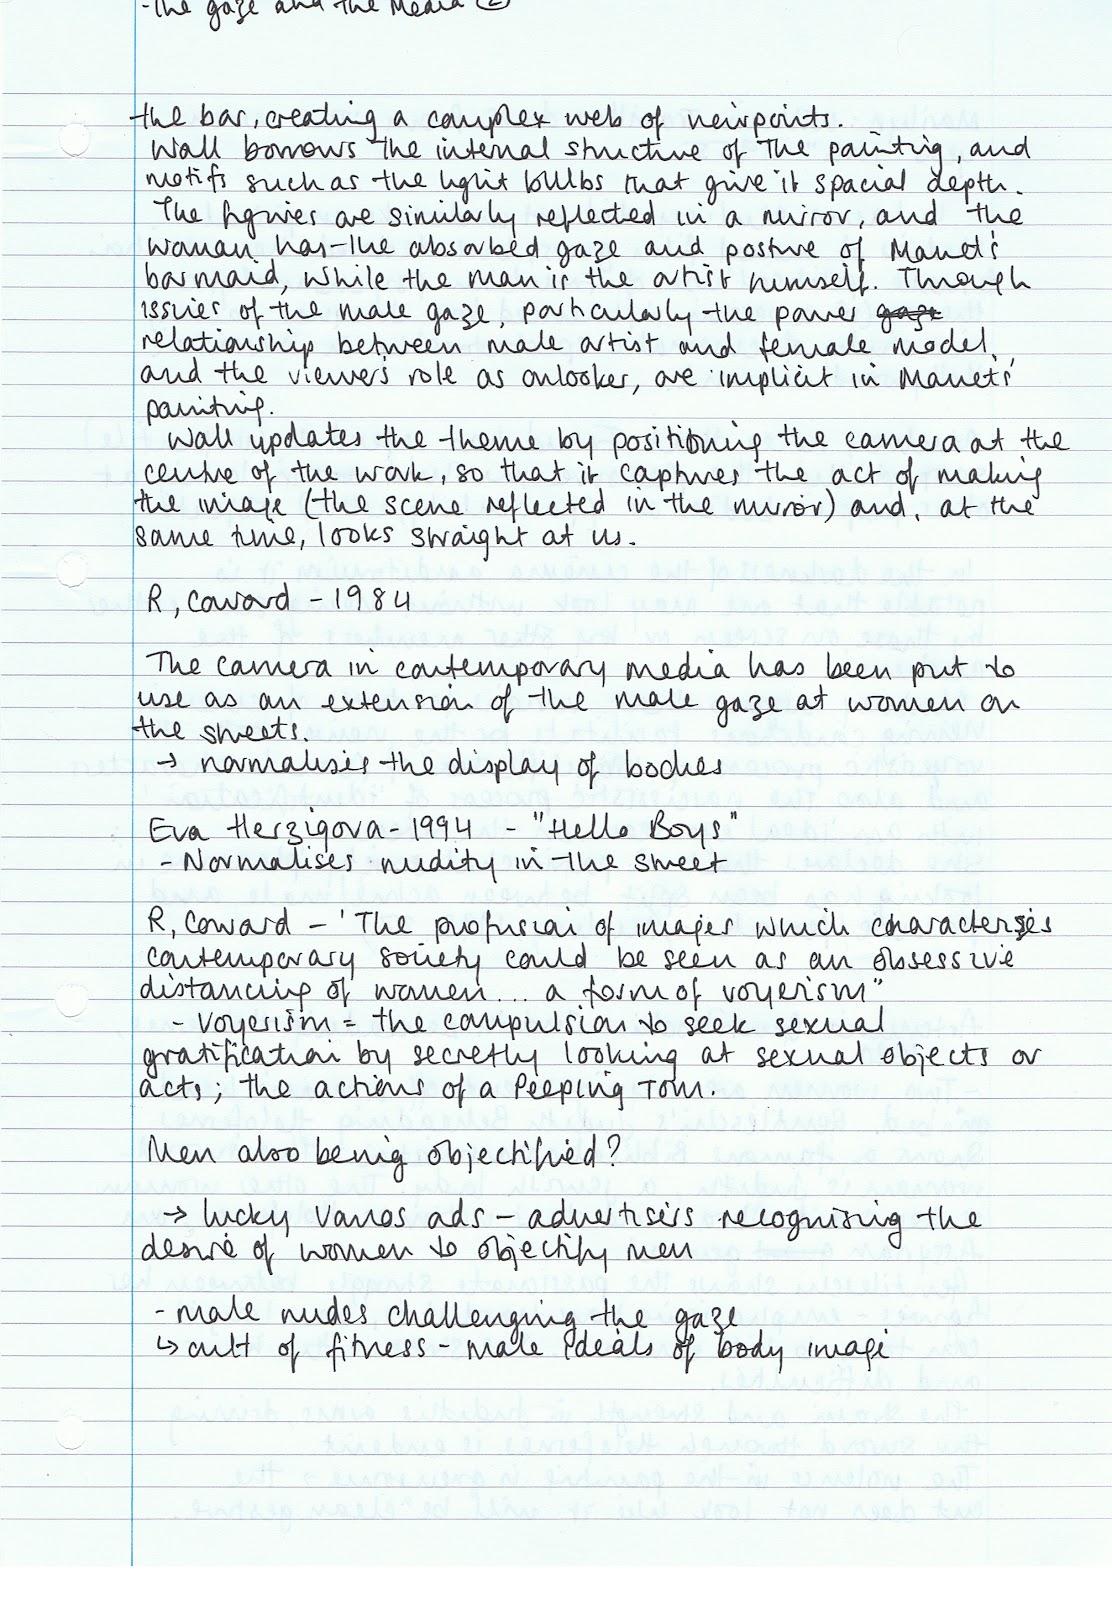 -The gaze and the Media ②
the bar, creating a complex web of veiwpoints.
Wall borrows the internal structure of the painting, and
motifs such as the light bulbs that give it spacial depth.
The figures are similarly reflected in a mirror, and the
woman has the absorbed gaze and posture of Manet's
barmaid, while the man is the artist himself. Though
issues of the male gaze, particularly the power gaze
relationship between male artist and female model,
and the viewer's role as onlooker, are implicit in Manet's
painting.
Wall updates the theme by positioning the camera at the
centre of the work, so that it captures the act of making
the image (the scene reflected in the mirror) and, at the
same time, looks straight at us.
R, Coward - 1984
The camera in contemporary media has been put to
use as an extension of the male gaze at women on
the streets.
→ normalises the display of bodies
Eva Herzigova - 1994 - "Hello Boys"
- Normalises nudity in the street
R, Coward - 'The profusion of images which characterises
contemporary society could be seen as an obsessive
distancing of women... a form of voyerism"
- Voyerism = the compulsion to seek sexual
gratification by secretly looking at sexual objects or
acts; the actions of a Peeping Tom.
Men also being objectified?
→ lucky Vanos ads - advertisers recognising the
desire of women to objectify men
- male nudes challenging the gaze
↳ cult of fitness - male ideals of body image